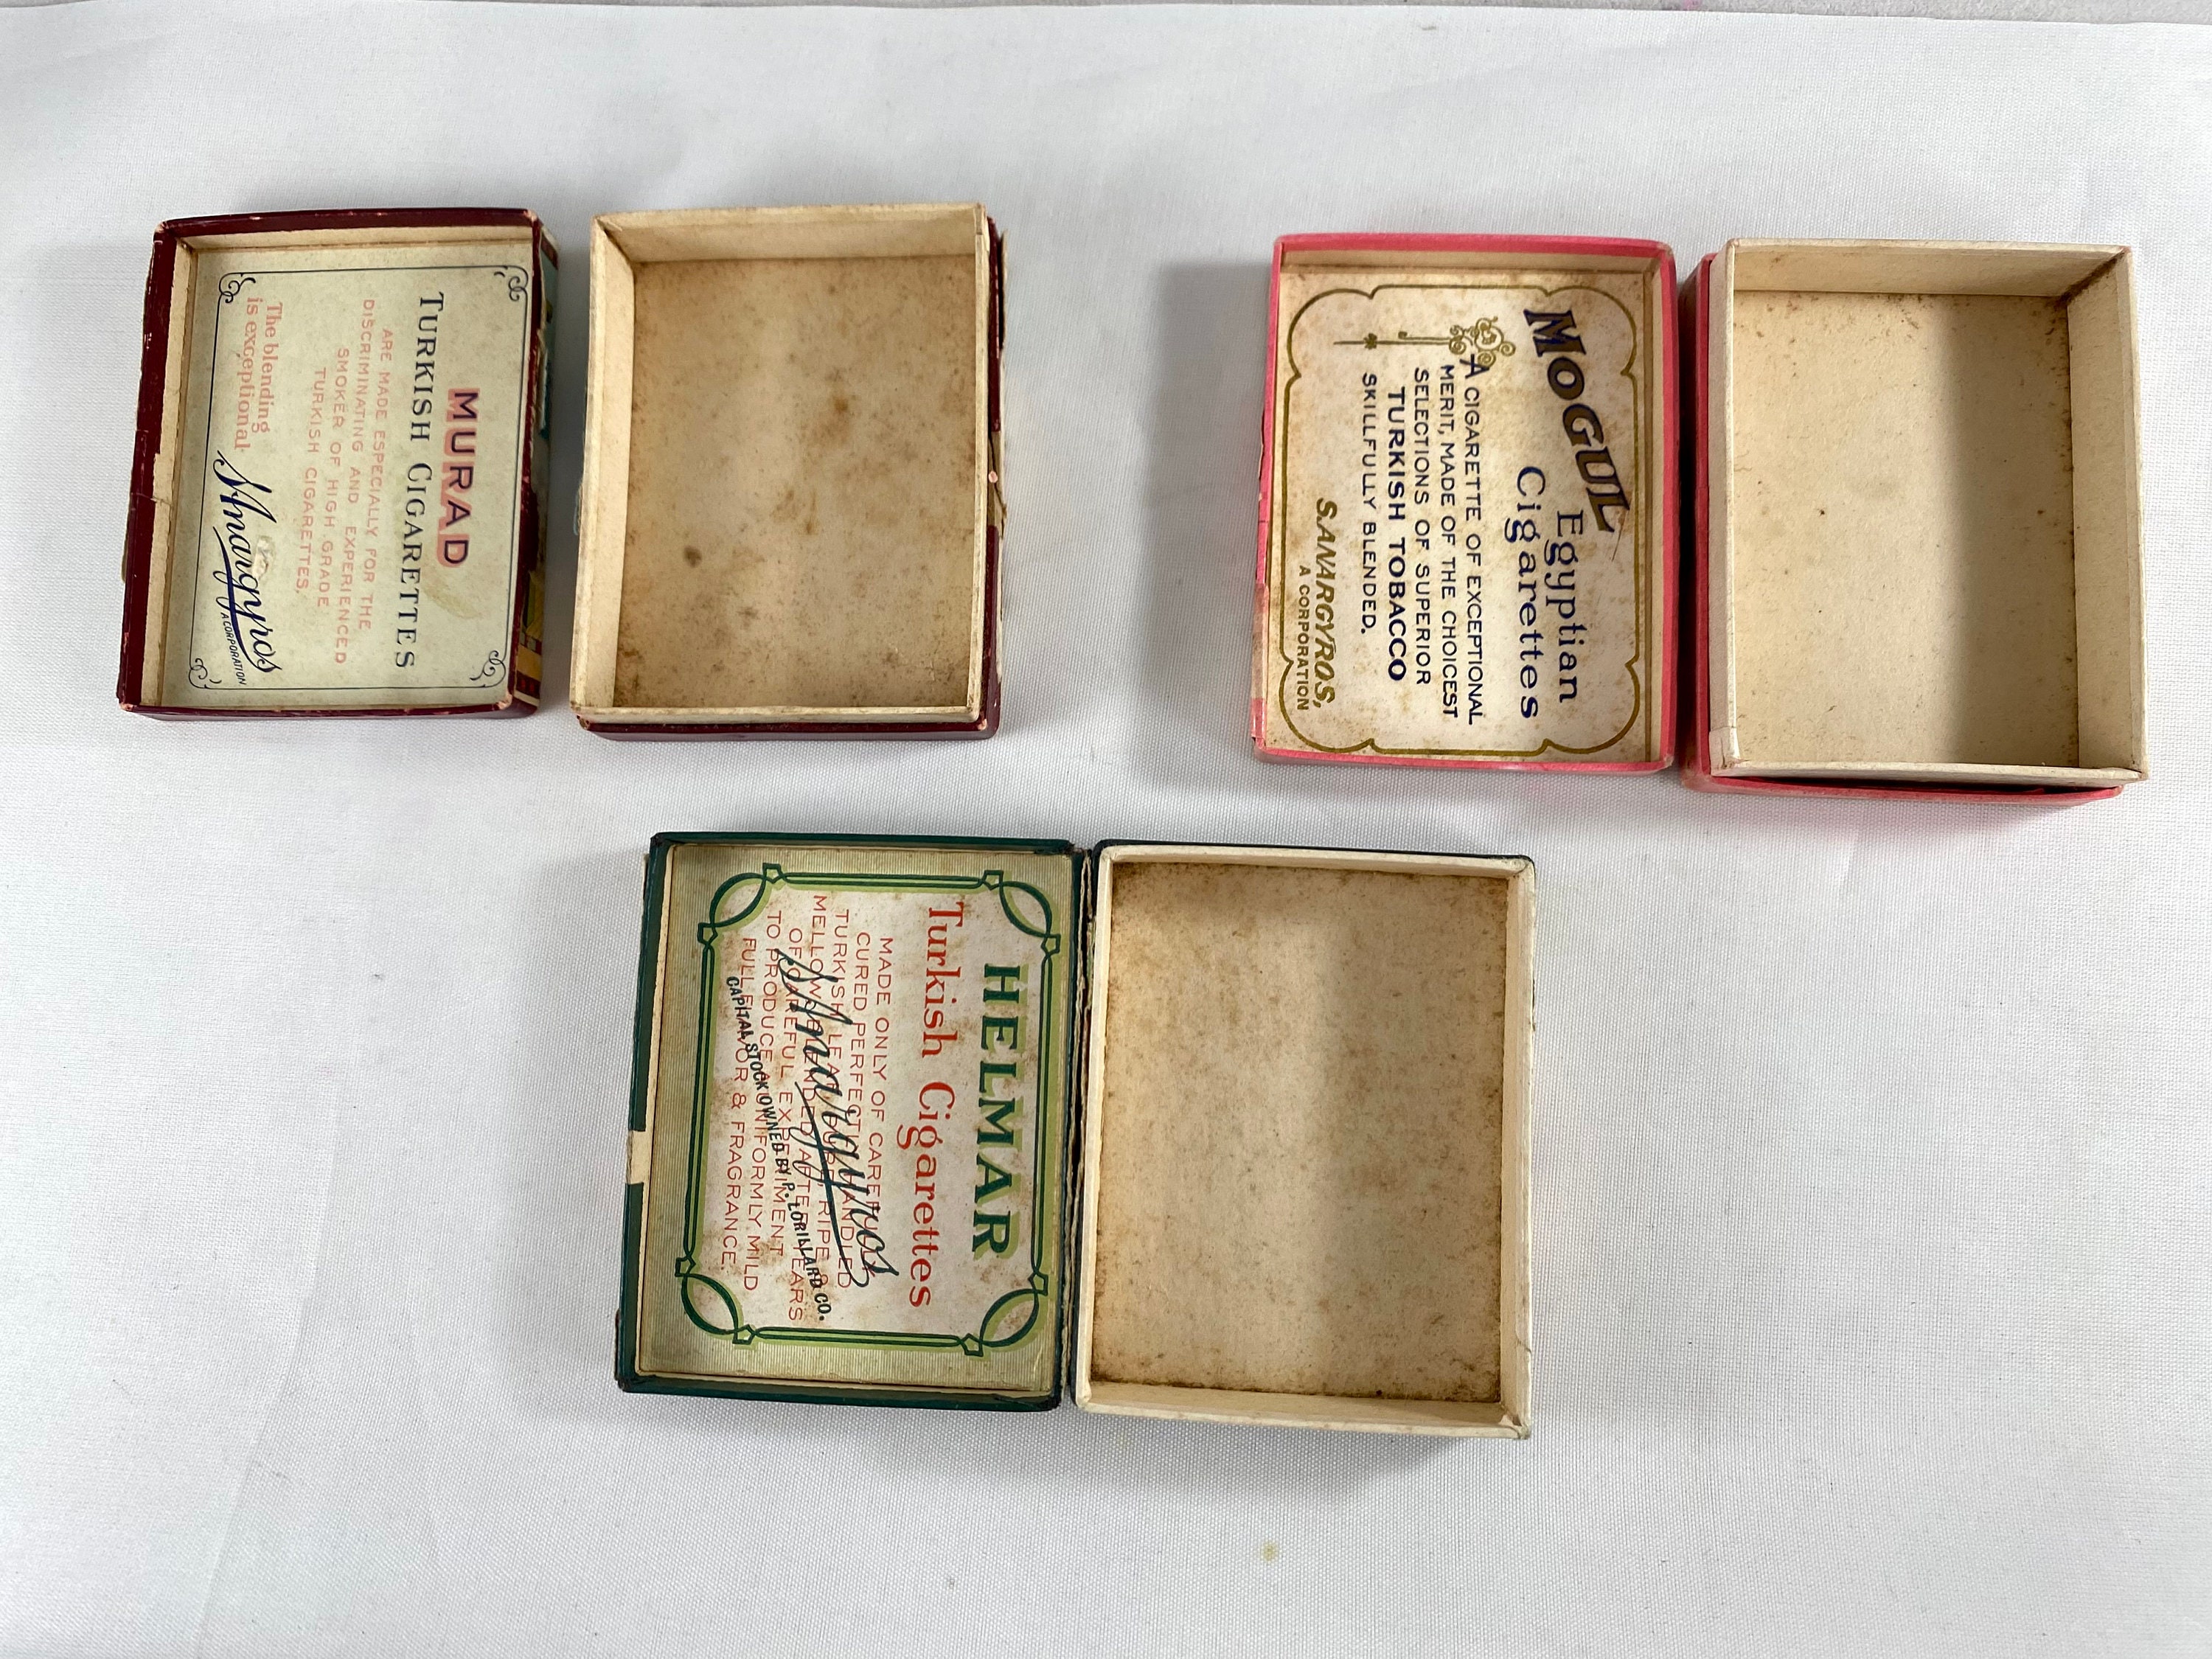 MURAD
TURKISH CIGARETTES
ARE MADE ESPECIALLY FOR THE
DISCRIMINATING AND EXPERIENCED
SMOKER OF HIGH GRADE
TURKISH CIGARETTES.
The blending
is exceptional.
S. Anargyros
A CORPORATION
MOGUL
Egyptian
Cigarettes
A CIGARETTE OF EXCEPTIONAL
MERIT, MADE OF THE CHOICEST
SELECTIONS OF SUPERIOR
TURKISH TOBACCO
SKILLFULLY BLENDED.
S. ANARGYROS,
A CORPORATION
HELMAR
Turkish Cigarettes
MADE ONLY OF CAREFULLY
CURED PERFECTLY HANDLED
TURKISH LEAF, PURE, RIPE &
MELLOW BLENDED AFTER YEARS
OF CAREFUL EXPERIMENT
TO PRODUCE A UNIFORMLY MILD
FULL FLAVOR & FRAGRANCE.
S. Anargyros
CAPITAL STOCK OWNED BY P. LORILLARD CO.